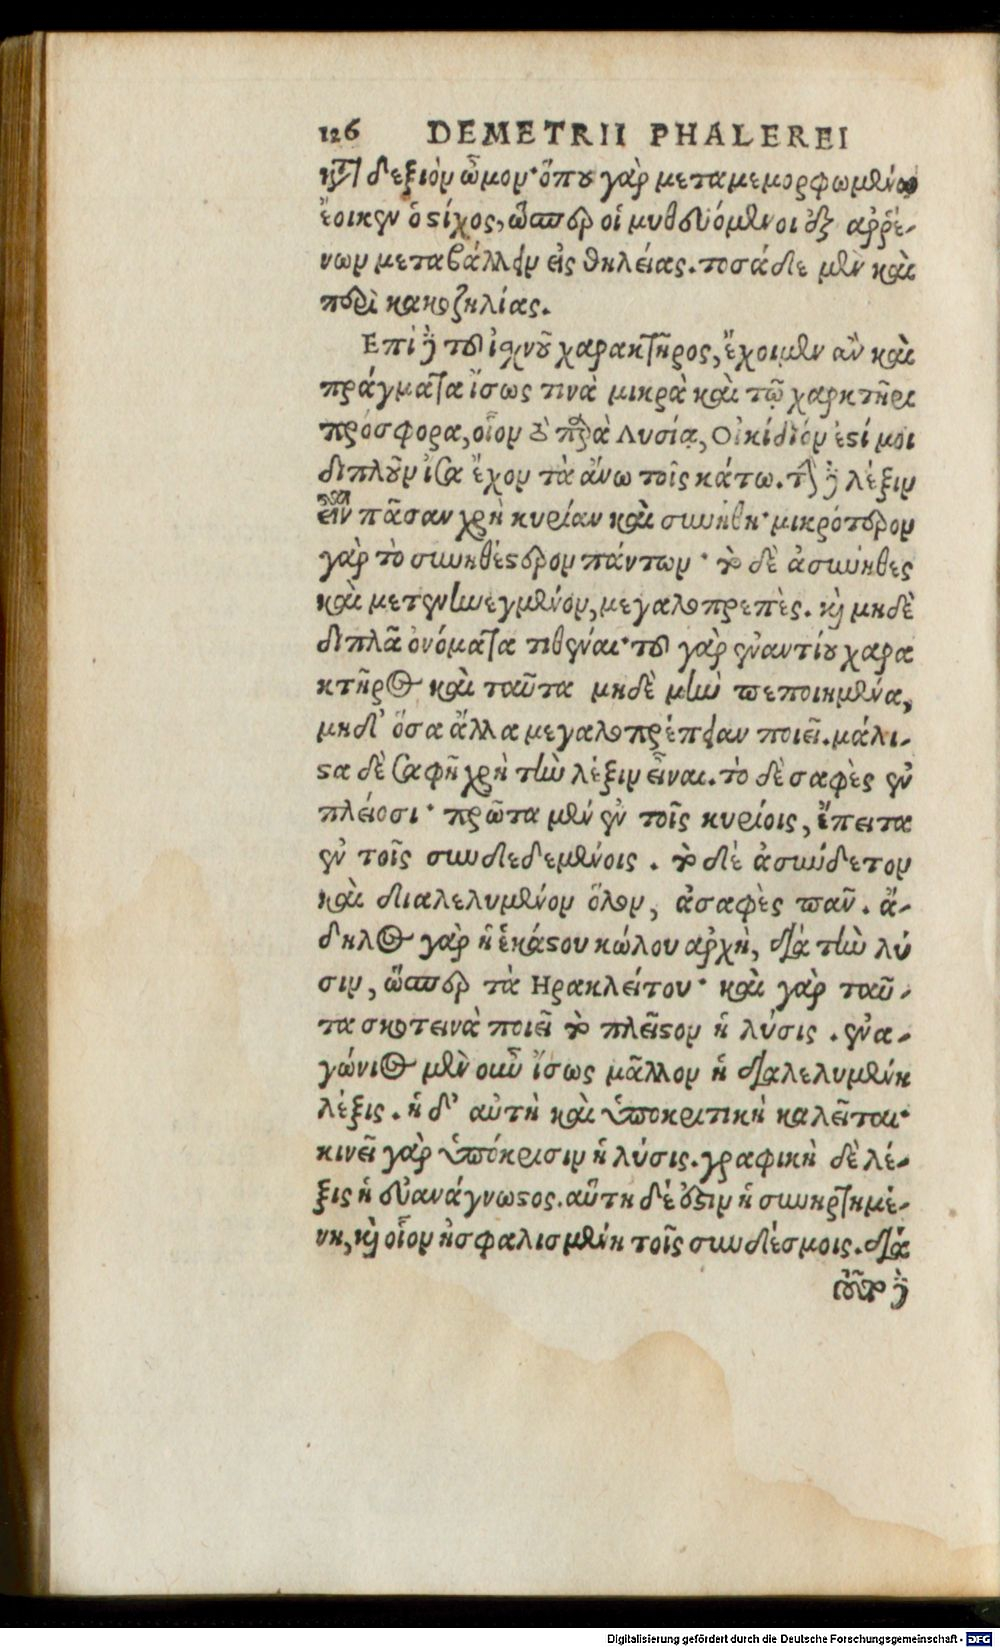 126 DEMETRII PHALEREI
κατὰ δεξιὸν ὦμον· ὅπου γὰρ μεταμεμορφωμένῳ
ἔοικεν ὁ στίχος, ὥσπερ οἱ μυθευόμενοι ἐξ ἀῤῥέ-
νων μεταβάλλειν εἰς θηλείας. τοσάδε μὲν καὶ
περὶ κακοζηλίας.
Επὶ δὲ τοῦ ἰσχνοῦ χαρακτῆρος, ἔχοιμεν ἂν καὶ
πράγματα ἴσως τινὰ μικρὰ καὶ τῷ χαρκτῆρι
πρόσφορα, οἷον τὸ παρὰ Λυσίᾳ, Οἰκίδιόν ἐστί μοι
διπλοῦν ἴσα ἔχον τὰ ἄνω τοῖς κάτω. τὴν δὲ λέξιν
εἶναι πᾶσαν χρὴ κυρίαν καὶ συνήθη· μικρότερον
γὰρ τὸ συνηθέστερον πάντων· τὸ δὲ ἀσύνηθες
καὶ μετενηνεγμένον, μεγαλοπρεπές. καὶ μηδὲ
διπλᾶ ὀνόματα τιθέναι· τοῦ γὰρ ἐναντίου χαρα
κτῆρος καὶ ταῦτα μηδὲ μὴν πεποιημένα,
μηδ' ὅσα ἄλλα μεγαλοπρέπειαν ποιεῖ. μάλι-
στα δὲ σαφῆ χρὴ τὴν λέξιν εἶναι. τὸ δὲ σαφὲς ἐν
πλείοσι· πρῶτα μὲν ἐν τοῖς κυρίοις, ἔπειτα
ἐν τοῖς συνδεδεμένοις. τὸ δὲ ἀσύνδετον
καὶ διαλελυμένον ὅλον, ἀσαφὲς πᾶν. ἄ-
δηλος γὰρ ἡ ἑκάστου κώλου ἀρχὴ, διὰ τὴν λύ
σιν, ὥσπερ τὰ Ηρακλείτου· καὶ γὰρ ταῦ-
τα σκοτεινὰ ποιεῖ τὸ πλεῖστον ἡ λύσις. ἐνα-
γώνιος μὲν οὖν ἴσως μᾶλλον ἡ διαλελυμένη
λέξις. ἡ δ' αὐτὴ καὶ ὑποκριτικὴ καλεῖται·
κινεῖ γὰρ ὑπόκρισιν ἡ λύσις. γραφικὴ δὲ λέ-
ξις ἡ εὐανάγνωστος. αὕτη δέ ἐστιν ἡ συνηρτημέ-
νη, καὶ οἷον ἠσφαλισμένη τοῖς συνδέσμοις. διὰ
τοῦτο δὲ
Digitalisierung gefördert durch die Deutsche Forschungsgemeinschaft - DFG